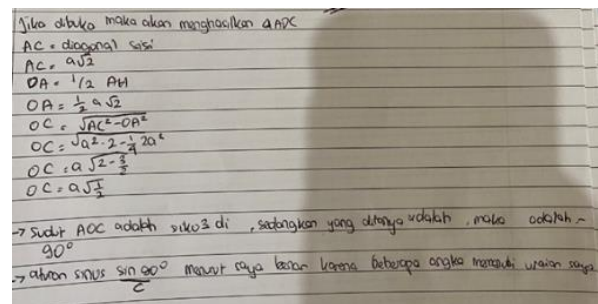 Jika dibuka maka akan menghasilkan △ADC
AC = diagonal sisi
AC = a√2
OA = 1/2 AH
OA = 1/2 a√2
OC = √AC²-OA²
OC = √a²·2-1/4 2a²
OC = a√2-3/2
OC = a√1/2
→ Sudut AOC adalah siku3 di , sedangkan yang ditanya adalah , maka adalah -
90°
→ aturan sinus sin 90°/c menurut saya benar karena beberapa angka memenuhi uraian saya